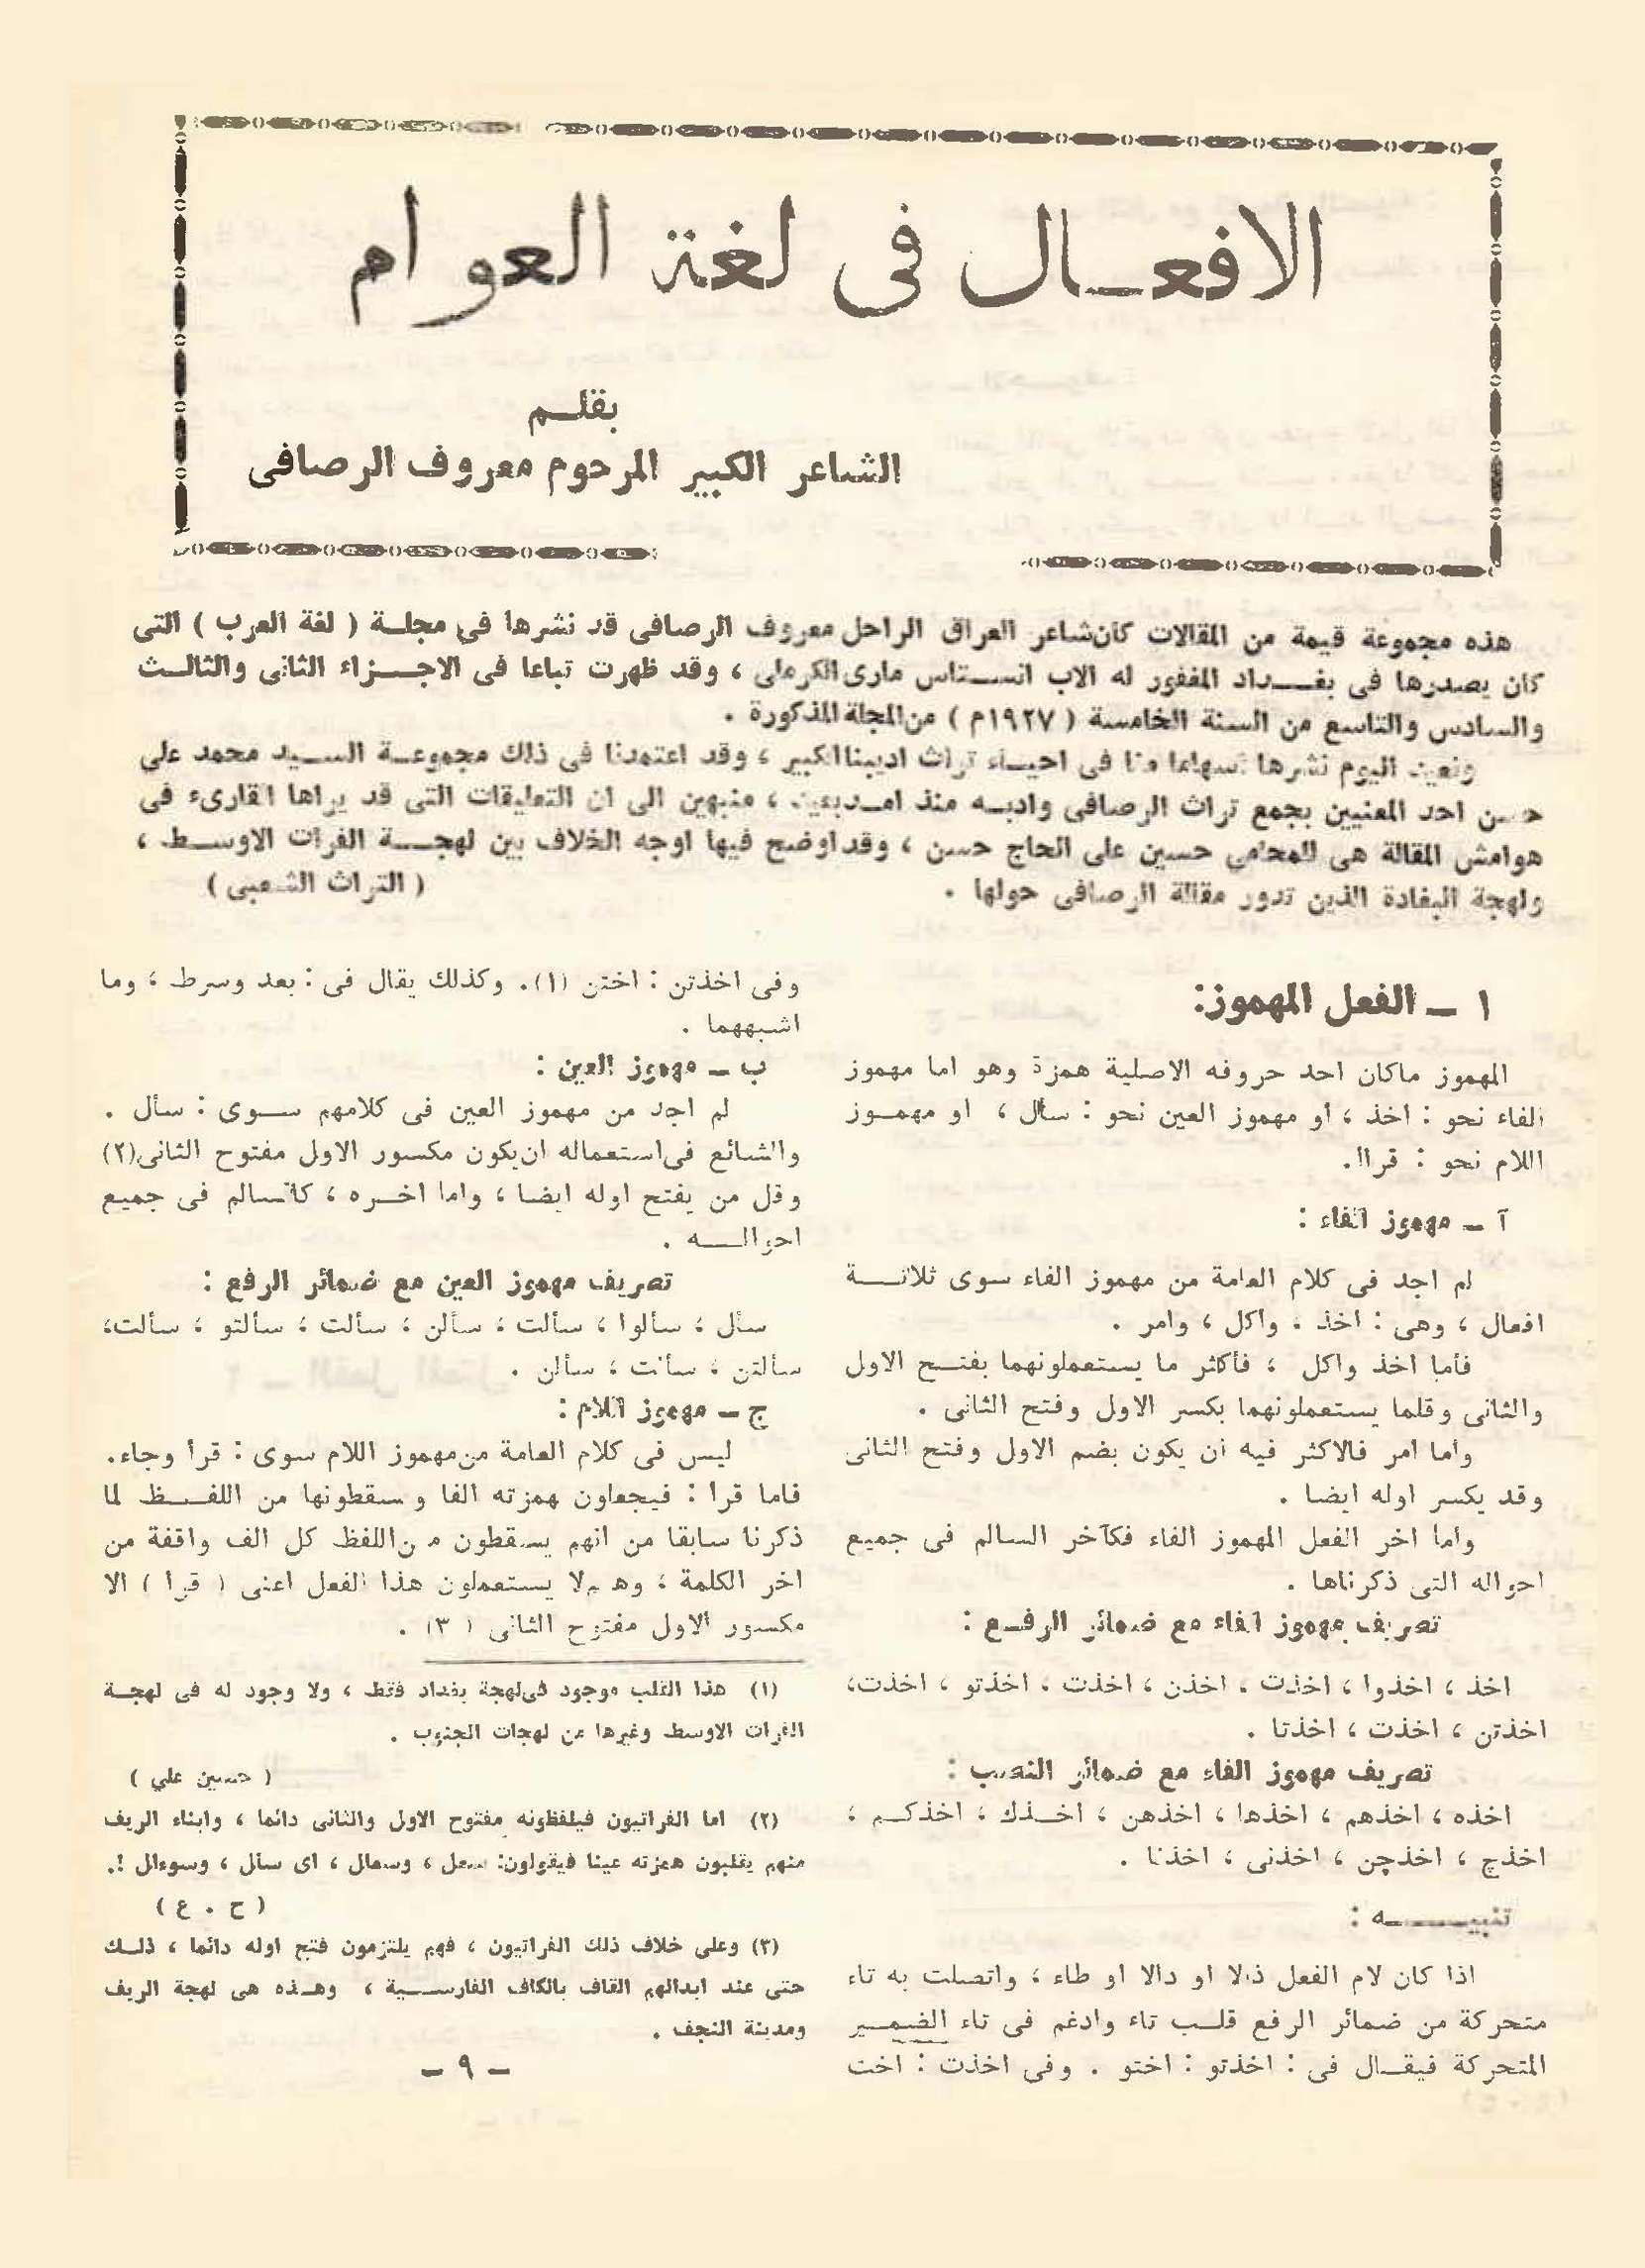 الافعـــال في لغة العوام
بقلـــم
الشاعر الكبير المرحوم معروف الرصافى
هذه مجموعة قيمة من المقالات كان شاعر العراق الراحل معروف الرصافى قد نشرها في مجلــة ( لغة العرب ) التى
كان يصدرها فى بغـــداد المغفور له الاب انســـتاس مارى الكرملى ، وقد ظهرت تباعا فى الاجـــزاء الثانى والثالــث
والسادس والتاسع من السنة الخامسة ( ١٩٢٧م ) من المجلة المذكورة .
ونعيد اليوم نشرها اسهاما منا فى احيـــاء تراث اديبنا الكبير ، وقد اعتمدنا فى ذلك مجموعــة الســـيد محمد على
حسن احد المعنيين بجمع تراث الرصافى وادبــه منذ امـــد بعيد ، منبهين الى ان التعليقات التى قد يراها القارىء فى
هوامش المقالة هى للمحامي حسين على الحاج حسن ، وقد اوضح فيها اوجه الخلاف بين لهجـــة الفرات الاوســـط ،
ولهجة البغادة الذين تدور مقالة الرصافى حولها . ( التراث الشعبى )
١ ــ الفعل المهموز:
المهموز ماكان احد حروفه الاصلية همزة وهو اما مهموز
الفاء نحو : اخذ ، أو مهموز العين نحو : سأل ، او مهمــوز
اللام نحو : قرأ.
آ ــ مهموز الفاء :
لم اجد فى كلام العامة من مهموز الفاء سوى ثلاثـــة
افعال ، وهى : اخذ ، واكل ، وامر .
فأما اخذ واكل ، فأكثر ما يستعملونهما بفتـــح الاول
والثانى وقلما يستعملونهما بكسر الاول وفتح الثانى .
واما امر فالاكثر فيه ان يكون بضم الاول وفتح الثانى
وقد يكسر اوله ايضا .
واما اخر الفعل المهموز الفاء فكآخر السالم فى جميع
احواله التى ذكرناها .
تصريف مهموز الفاء مع ضمائر الرفـــع :
اخذ ، اخذوا ، اخذت ، اخذن ، اخذت ، اخذتو ، اخذت،
اخذتن ، اخذت ، اخذتا .
تصريف مهموز الفاء مع ضمائر النصب :
اخذه ، اخذهم ، اخذها ، اخذهن ، اخـــذك ، اخذكــم ،
اخذج ، اخذچن ، اخذنى ، اخذنا .
تنبيـــــه :
اذا كان لام الفعل ذالا او دالا او طاء ، واتصلت به تاء
متحركة من ضمائر الرفع قلـــب تاء وادغم فى تاء الضمـــير
المتحركة فيقـــال فى : اخذتو : اختو . وفى اخذت : اخت
وفى اخذتن : اختن (١). وكذلك يقال فى : بعد وسرط ، وما
اشبههما .
ب ــ مهموز العين :
لم اجد من مهموز العين فى كلامهم ســـوى : سأل .
والشائع فى استعماله ان يكون مكسور الاول مفتوح الثانى(٢)
وقل من يفتح اوله ايضا ، واما اخـــره ، كالسالم فى جميع
احوالـــه .
تصريف مهموز العين مع ضمائر الرفع :
سأل ، سألوا ، سألت ، سألن ، سألت ، سألتو ، سألت،
سألتن ، سألت ، سألن .
ج ــ مهموز اللام :
ليس فى كلام العامة من مهموز اللام سوى : قرأ وجاء.
فاما قرأ : فيجعلون همزته الفا ويسقطونها من اللفـــظ لما
ذكرنا سابقا من انهم يسقطون من اللفظ كل الف واقفة من
اخر الكلمة ، وهم لا يستعملون هذا الفعل اعنى ( قرأ ) الا
مكسور الاول مفتوح الثانى (٣) .
(١) هذا القلب موجود فى لهجة بغداد فقط ، ولا وجود له فى لهجــة
الفرات الاوسط وغيرها من لهجات الجنوب .
( حسين علي )
(٢) اما الفراتيون فيلفظونه مفتوح الاول والثانى دائما ، وابناء الريف
منهم يقلبون همزته عينا فيقولون: سعل ، وسعال ، اى سأل ، وسوءال !.
( ح . ع )
(٣) وعلى خلاف ذلك الفراتيون ، فهم يلتزمون فتح اوله دائما ، ذلــك
حتى عند ابدالهم القاف بالكاف الفارســـية ، وهـــذه هى لهجة الريف
ومدينة النجف .
ــ ٩ ــ